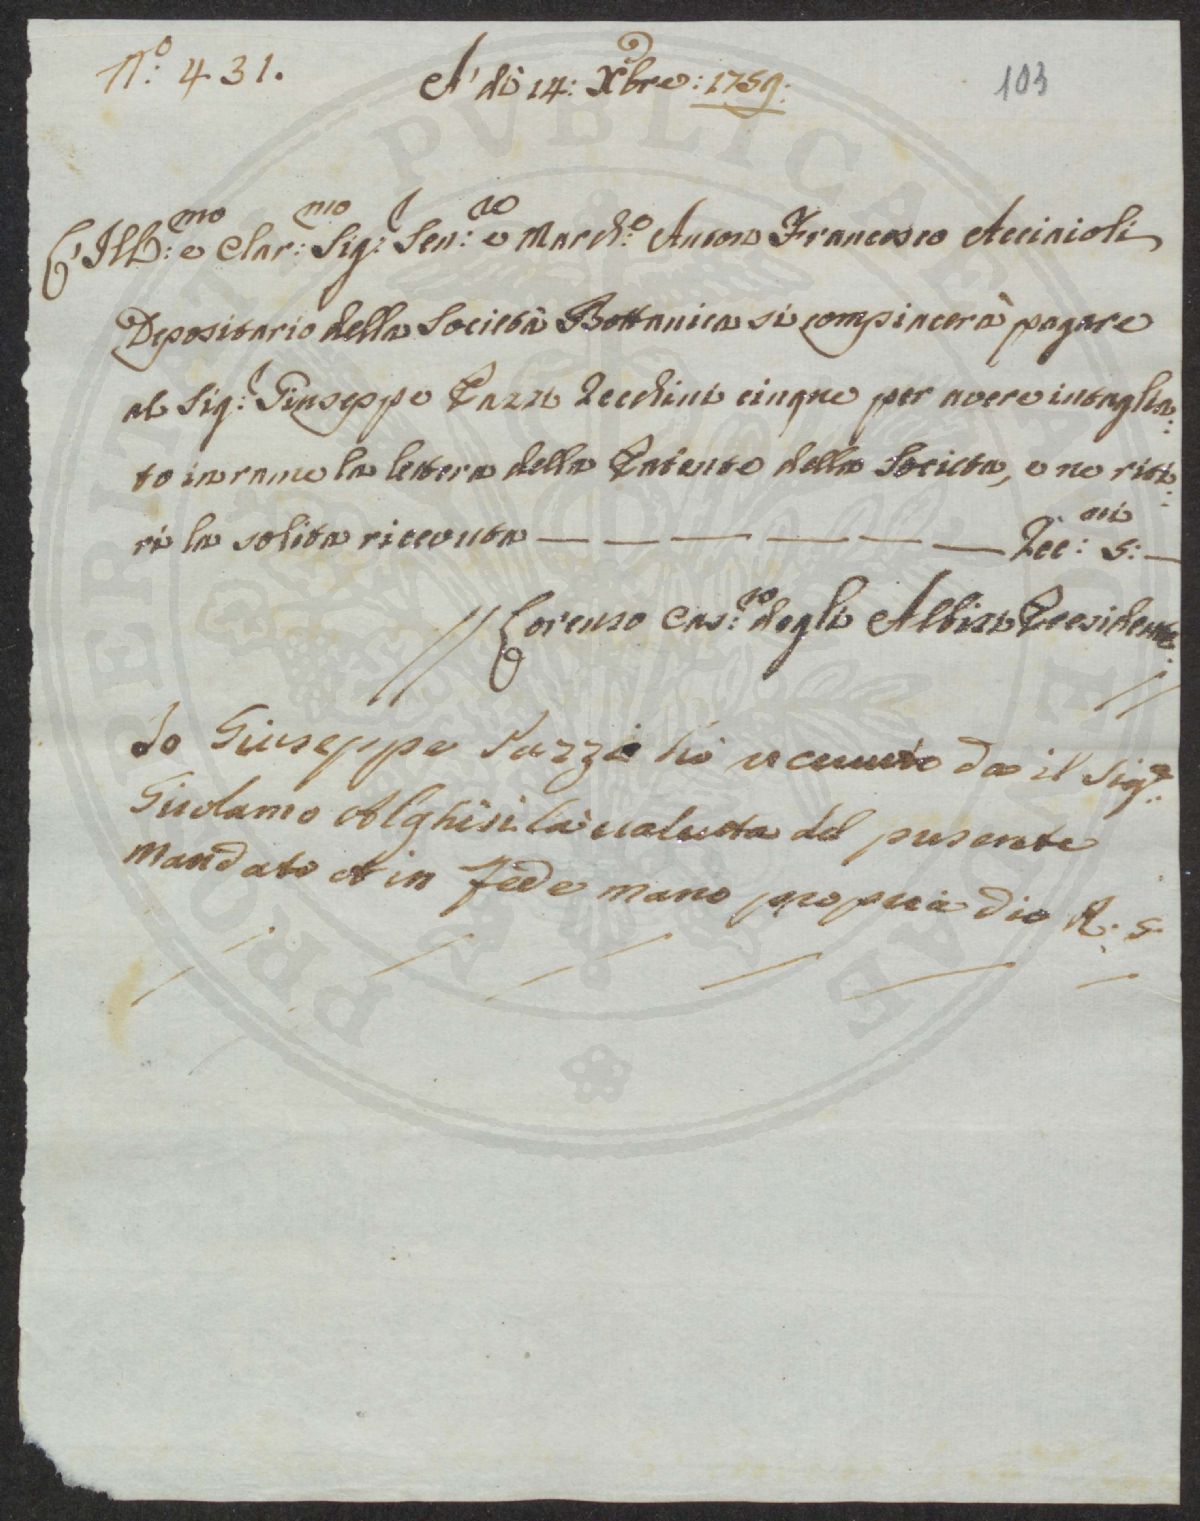 N.o: 431.
A' dì 14: Xbre: 1759:
103
L'Ill:mo e Clar:mo Sig:r Sen:re e March:o Anton Francesco Acciaioli
Depositario della Società Bottanica si compiacerà pagare
al Sig:r Giuseppe Pazzi Zecchini cinque per avere intaglia:
to in rame la lettera della Patente della Società, e ne riti:
ri la solita ricevuta — — — — — — Zec:ni 5: —
// Lorenzo Gas:re degli Albizi Presidente
Io Giuseppe Pazzi hò riceuuto da il Sig.re
Girolamo Alghisi la ualutta del presente
Mandato et in fede mano propria dico R. 5
PROSPERITATI PVBLICAE AVGENDAE